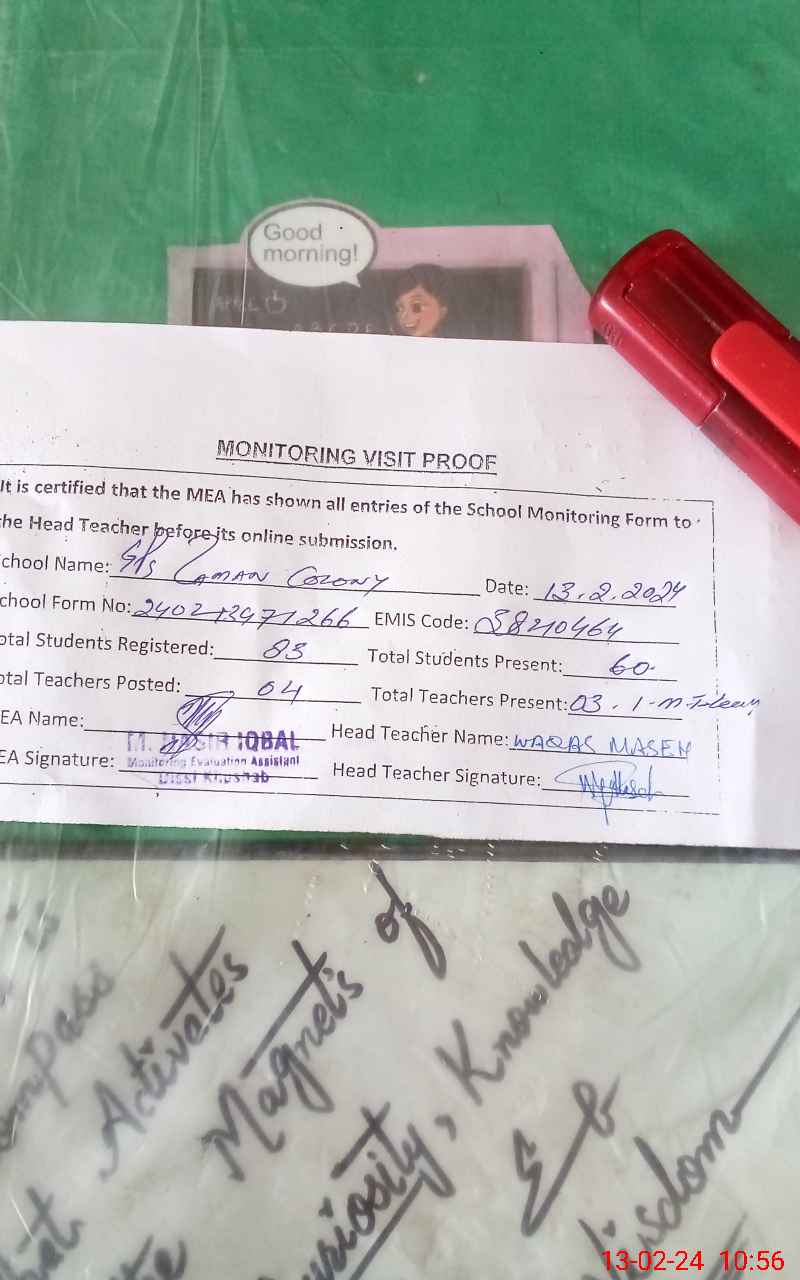 Good
morning!
APPLE
ABCDE
MONITORING VISIT PROOF
It is certified that the MEA has shown all entries of the School Monitoring Form to
the Head Teacher before its online submission.
chool Name: GPS Zaman Colony Date: 13.2.2024
chool Form No: EMIS Code: 38210464
otal Students Registered: 83 Total Students Present: 60.
otal Teachers Posted: 04 Total Teachers Present: 03. 1-M-Leave
EA Name: Head Teacher Name: WAQAS MASEH
M. IQBAL
EA Signature: Monitoring Evaluation Assistant Head Teacher Signature:
Disst Khushab
is
ompass
Activates
Magnets of
hat
the
uriosity, Knowledge
&
isdom
13-02-24 10:56